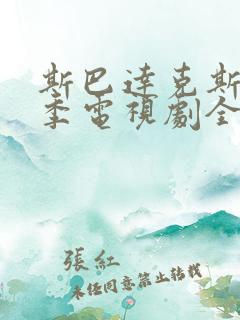 斯巴達克斯
季電視劇全
張紅
未經同意禁止轉載